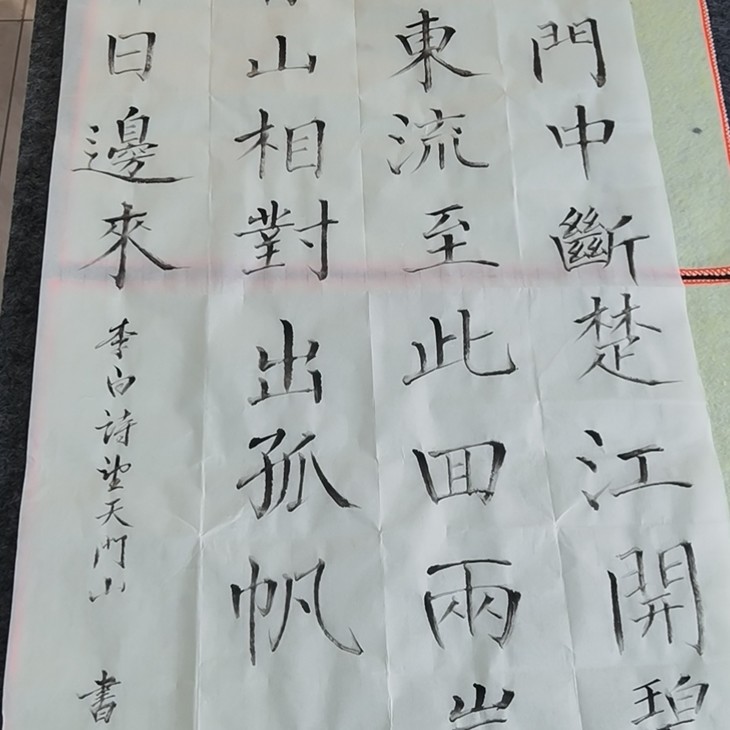 門中斷楚江開碧
東流至此回兩岸
山相對出孤帆
日邊來
李白詩望天門山 書